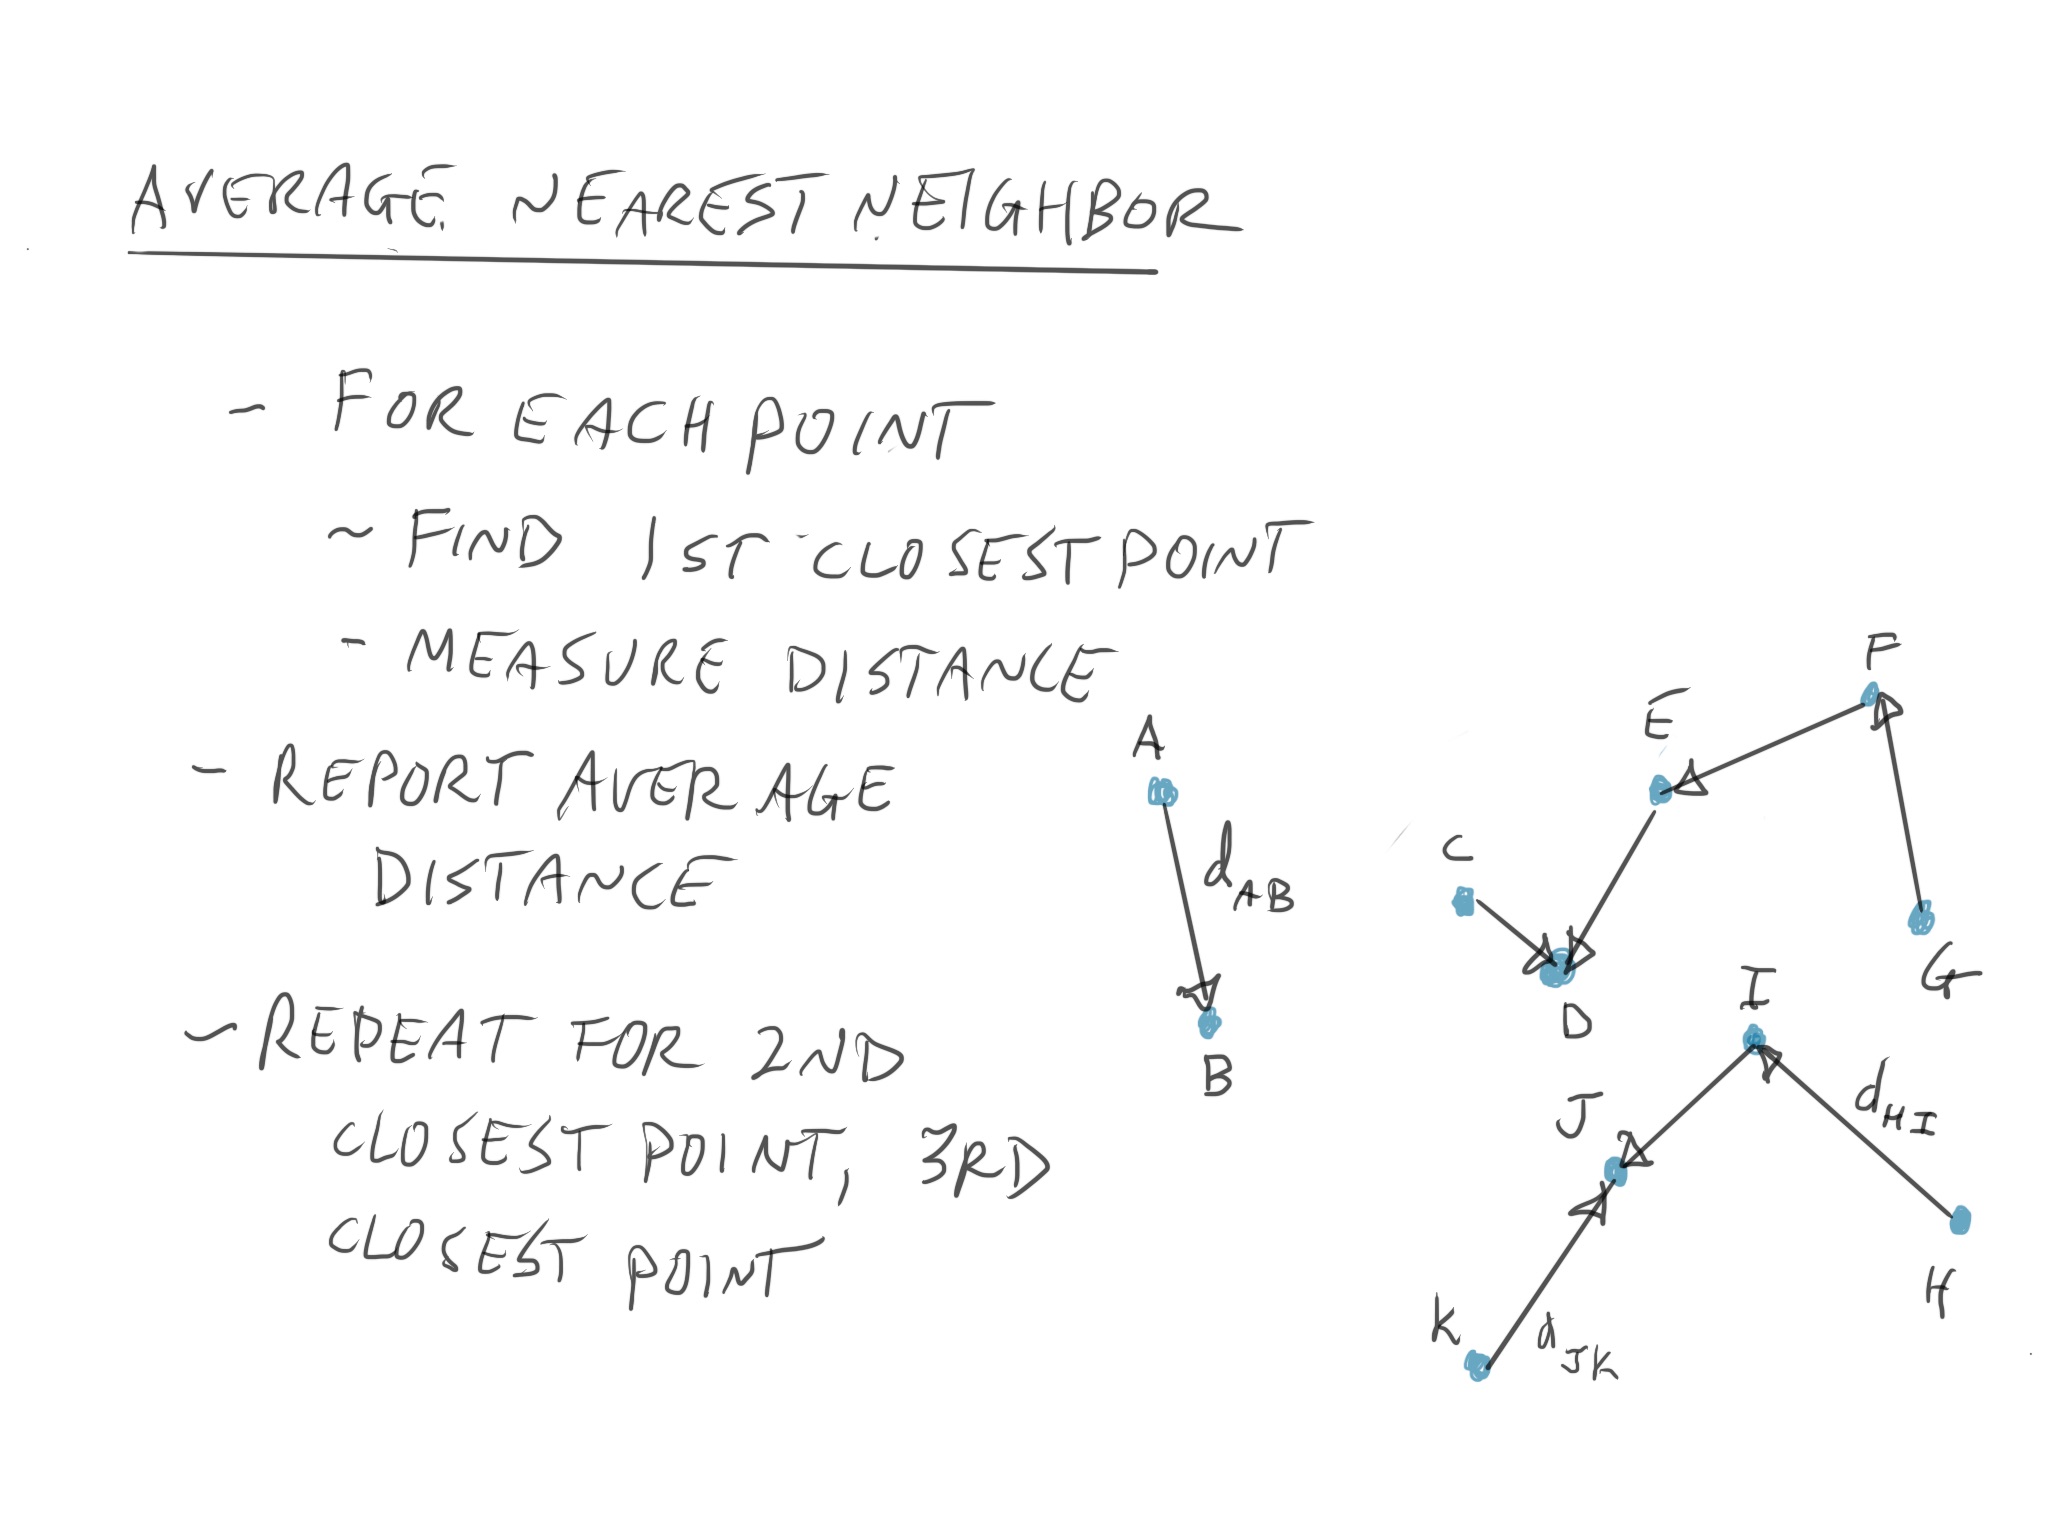 AVERAGE NEAREST NEIGHBOR
- FOR EACH POINT
~ FIND 1ST CLOSEST POINT
- MEASURE DISTANCE
- REPORT AVERAGE
DISTANCE
~ REPEAT FOR 2ND
CLOSEST POINT, 3RD
CLOSEST POINT
A
dAB
B
F
E
C
D
G
I
dHI
J
H
K
dJK